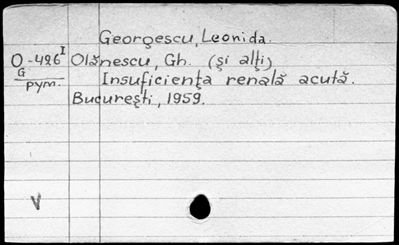 Georgescu, Leonida.
O-426 I Olănescu, Gh. (şi alţi)
G
рум. Insuficienţa renală acută.
Bucureşti, 1959.
V